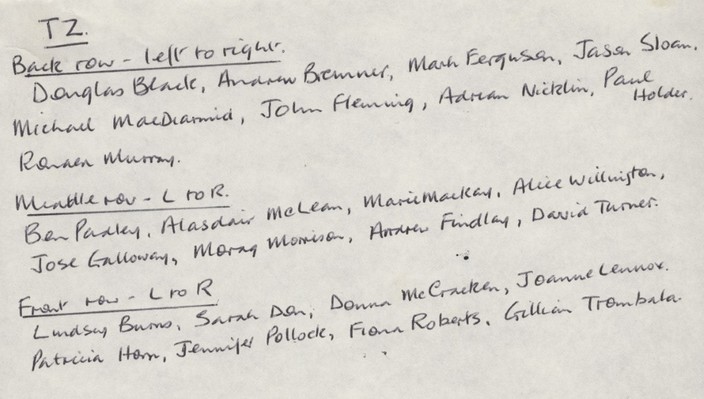 T2.
Back row - left to right.
Douglas Black, Andrew Bremner, Mark Ferguson, Jason Sloan.
Michael MacDiarmid, John Fleming, Adrian Nicklin, Paul Holder.
Murray.
Middle row - L to R.
Ben Padley, Alasdair McLean, Marie Mackay, Alice Willington,
Jose Galloway, Morag Morrison, Andrew Findlay, David Turner.
Front row - L to R
Lindsay Burns, Sarah Don, Donna McCracken, Joanne Lennox.
Patricia Horn, Jennifer Pollock, Fiona Roberts, Gillian Trombala.